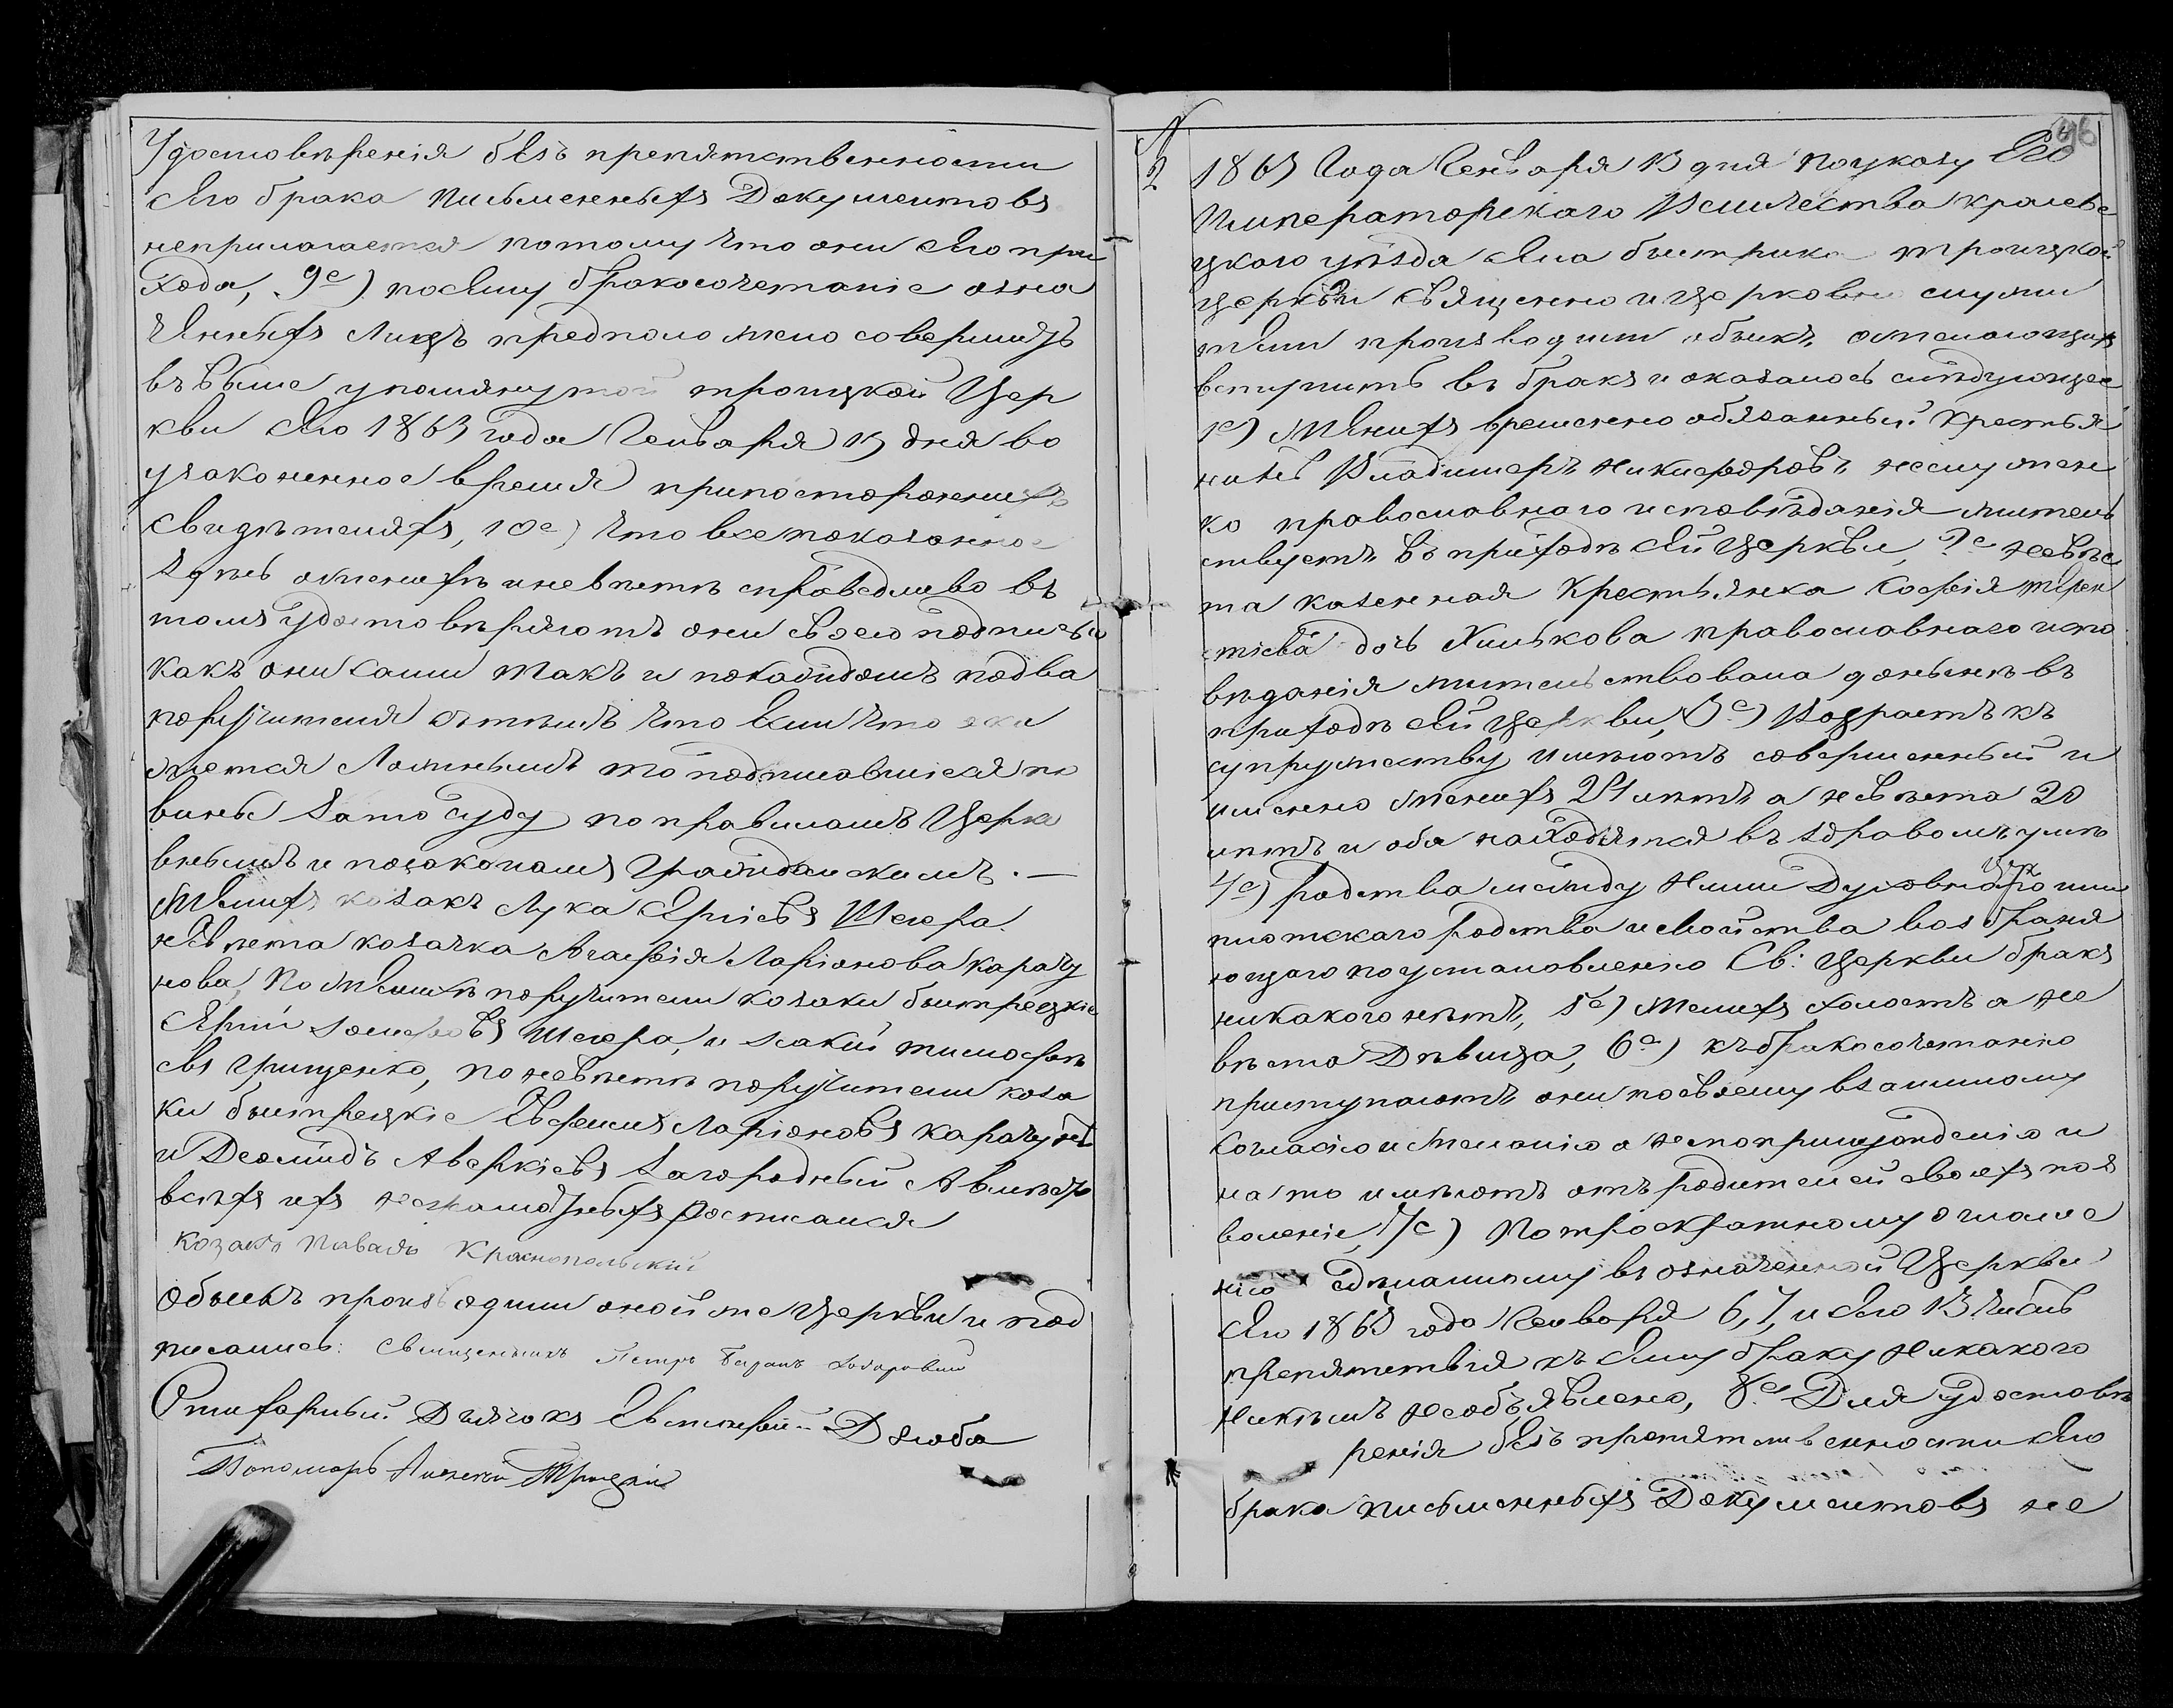 Удостовѣренія безъ препятственности
сего брака письменныхъ Документовъ
неприлагается потому что они сего при
хода, 9е) посему бракосочетаніе озна
ченныхъ лицъ предположено совершить
въ выше упомянутой троицкой Цер
кви сего 1863 года Генваря 13 дня во
узаконенное время припостороннихъ
свидѣтеляхъ, 10е) что все показанное
здѣсь ожениѣхѣ иневѣстѣ справедливо въ
томъ удостовѣряютъ они своею подписью
какъ они сами такъ и покаждомъ подва
поручителя стѣмъ что если что ока
жется ложнымъ то подписавшіеся по
винны зато суду поправиламъ Церко
внымъ и позаконамъ гражданскимъ. —
Женихъ козакъ Лука
невѣста козачка Агафія Ларіонова карачу
нова, по женихѣ поручители козаки быстрецкіе
и тимофѣе
въ Грищенко, по невѣстѣ поручители коза
ки быстрецкіе Ефремъ Ларіоновъ карачунъ
и Деомидъ Аверкіевъ Загородный Авмѣсто
всѣхъ ихъ неграмотныхъ росписался
козакъ Павелъ Краснопольскій
Обыскъ производили оной же Церкви и под
писались: Священникъ Петръ
Стихарный Дьячокъ Евстафій Дзюба
Пономарь Троицкій
46
№
2
1863 Года Генваря 13 дня поуказу Его
Императорскаго Величества кролеве
цкаго уѣзда села быстрика троицкой
церкви священно и церковно служи
тели производили обыскъ ожелающихъ
вступить въ бракъ и оказалось слѣдующее
1е) Женихъ временно обязанный Крестья
нинъ Владимеръ Никифоровъ
ко православнаго исповѣданія житель
ствуетъ въ приходѣ сей Церкви, 2е невѣс
та казенная Крестьянка Софія терен
тіева дочь Хилькова православнаго испо
вѣданія жительствовала донынѣ въ
приходѣ сей Церкви, 3е) Возрастъ къ
супружеству имѣютъ совершенный и
именно Женихъ 21 лѣтъ а невѣста 20
лѣтъ и оба находятся въ здравомъ умѣ
4е) родства между ними Духовнаго или
плотскаго родства исвойства возбраня
ющаго поустановленію Св: Церкви бракъ
никакого нѣтъ, 5е) Женихъ холостъ а не
вѣста Дѣвица, 6е) къ бракосочетанію
приступаютъ они посвоему взаимному
согласію и Желанію а непопринужденію и
на то имѣютъ отъ родителей своихъ поз
воленіе, 7е) Потроекратному оглаше
нію сдѣланному въ означенной Церкви
сего 1863 года Генваря 6, 7, и сего 13 чиселъ
препятствія къ сему браку никакого
никѣмъ необъявлено, 8е Для удостовѣ
ренія безъ препятственности сего
брака письменныхъ Документовъ не